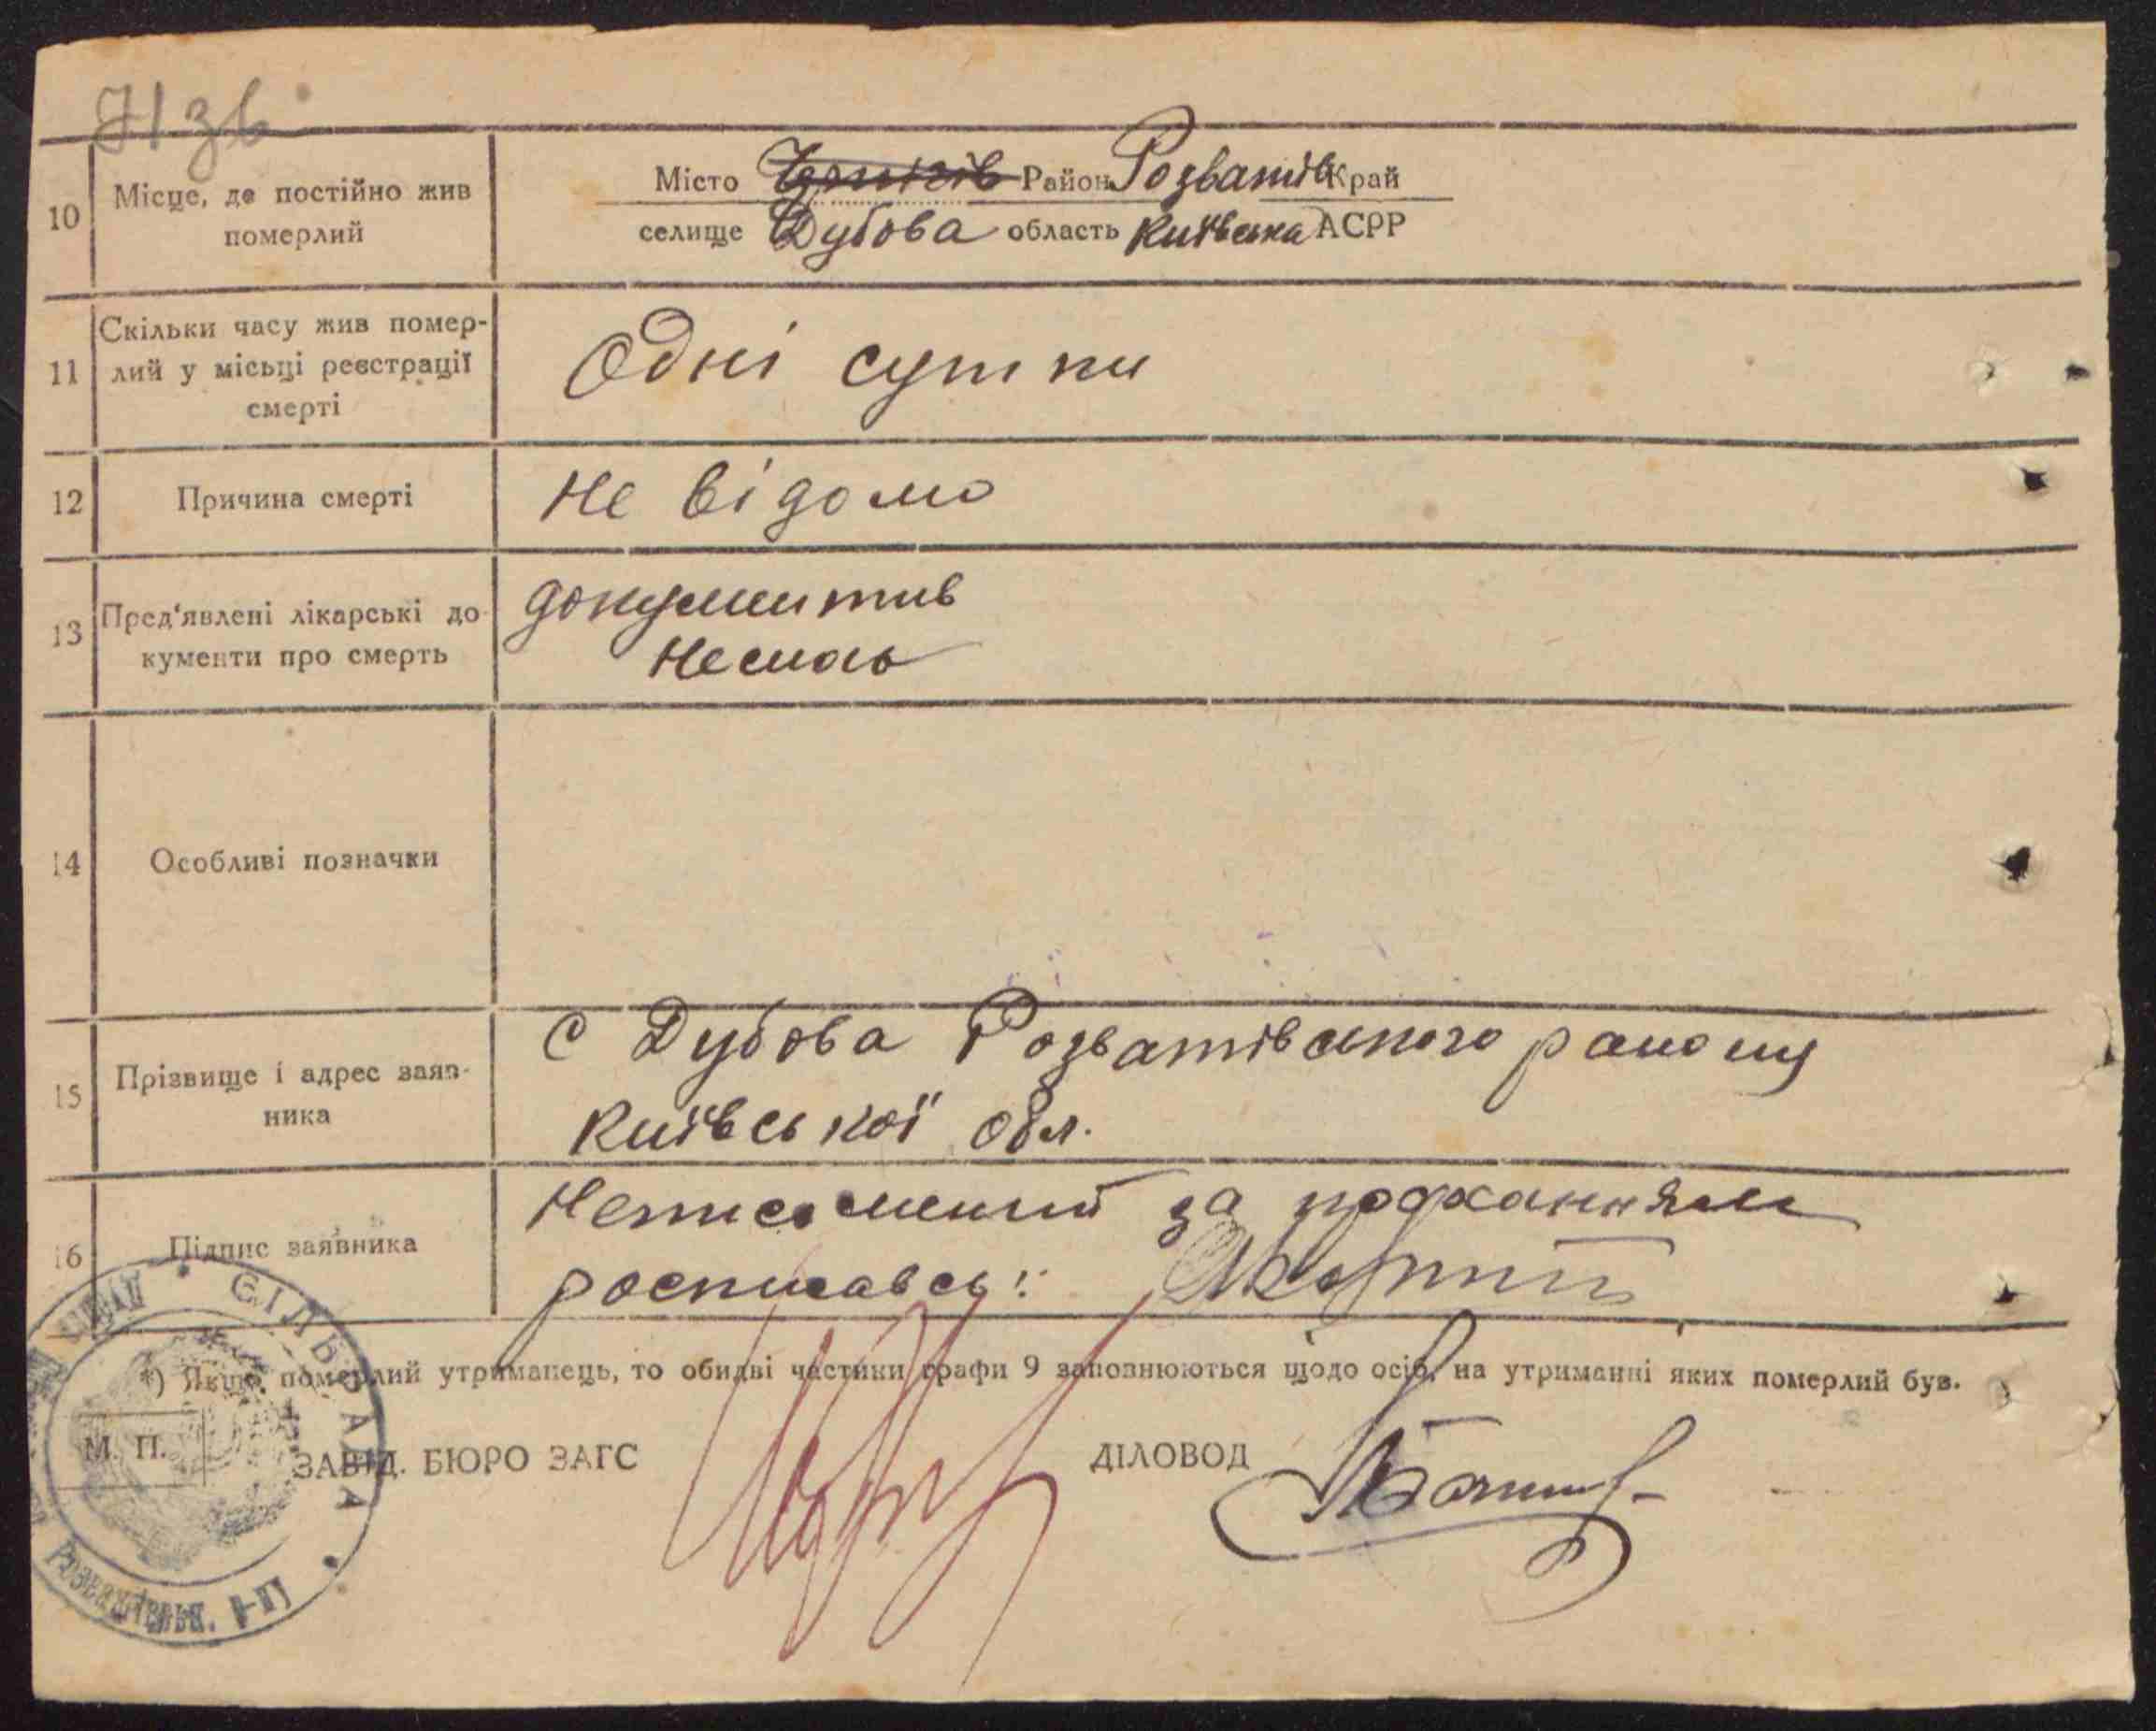 10 Місце, де постійно жив померлий
Місто Район Розватів край
селище Дубова область Київська АСРР
11 Скільки часу жив помер-
лий у місьці реєстрації
смерті
Одні сутки
12 Причина смерті
Не відомо
13 Пред'явлені лікарські до
кументи про смерть
документив
Немає
14 Особливі позначки
15 Прізвище і адрес заяв-
ника
с Дубова Розватівського району
Київської обл.
16 Підпис заявника
Неписьменний за проханням
росписавсь:
*) Якщо померлий утриманець, то обидві частини графи 9 заповнюються щодо осіб, на утриманні яких померлий був.
М. П.
ЗАВІД. БЮРО ЗАГС
ДІЛОВОД
СІЛЬРАДА